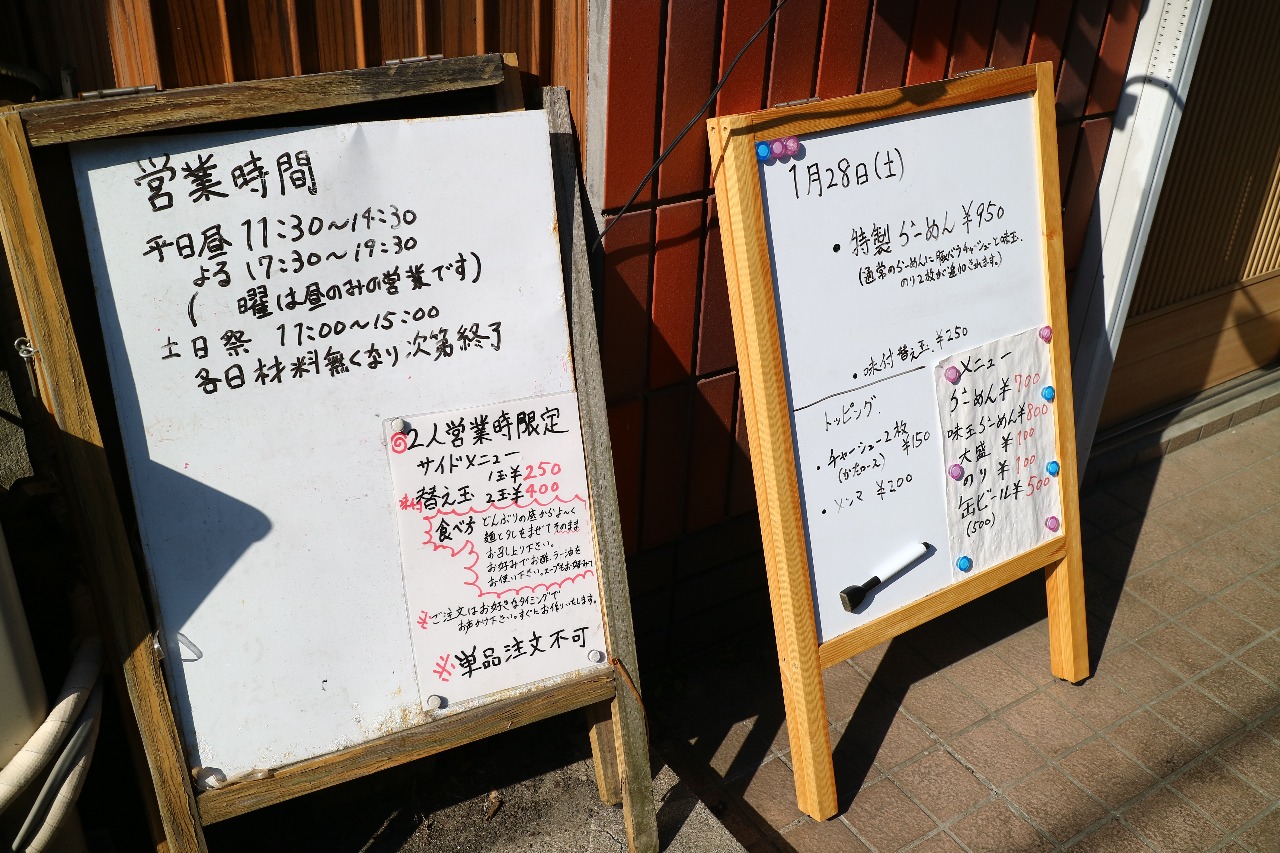 営業時間
平日昼 11:30〜14:30
よる 17:30〜19:30
( 曜は昼のみの営業です)
土日祭 11:00〜15:00
各日材料無くなり次第終了
2人営業時限定
サイドメニュー
1玉¥250
味付替え玉 2玉¥400
食べ方
どんぶりの底からよ〜く
麺とタレをまぜてそのまま
お召し上り下さい。
お好みでお酢、ラー油を
お使い下さい。スープもお好みで
※ご注文はお好きなタイミングで
お声かけ下さい。すぐにお作りいたします。
※単品注文不可
1月28日(土)
・特製らーめん ¥950
(通常のらーめんに豚バラチャーシューと味玉、
のり2枚が追加されます。)
・味付替え玉 ¥250
トッピング
・チャーシュー2枚
(かたロース) ¥150
・メンマ ¥200
メニュー
らーめん¥700
味玉らーめん¥800
大盛 ¥100
のり ¥100
缶ビール¥500
(500)